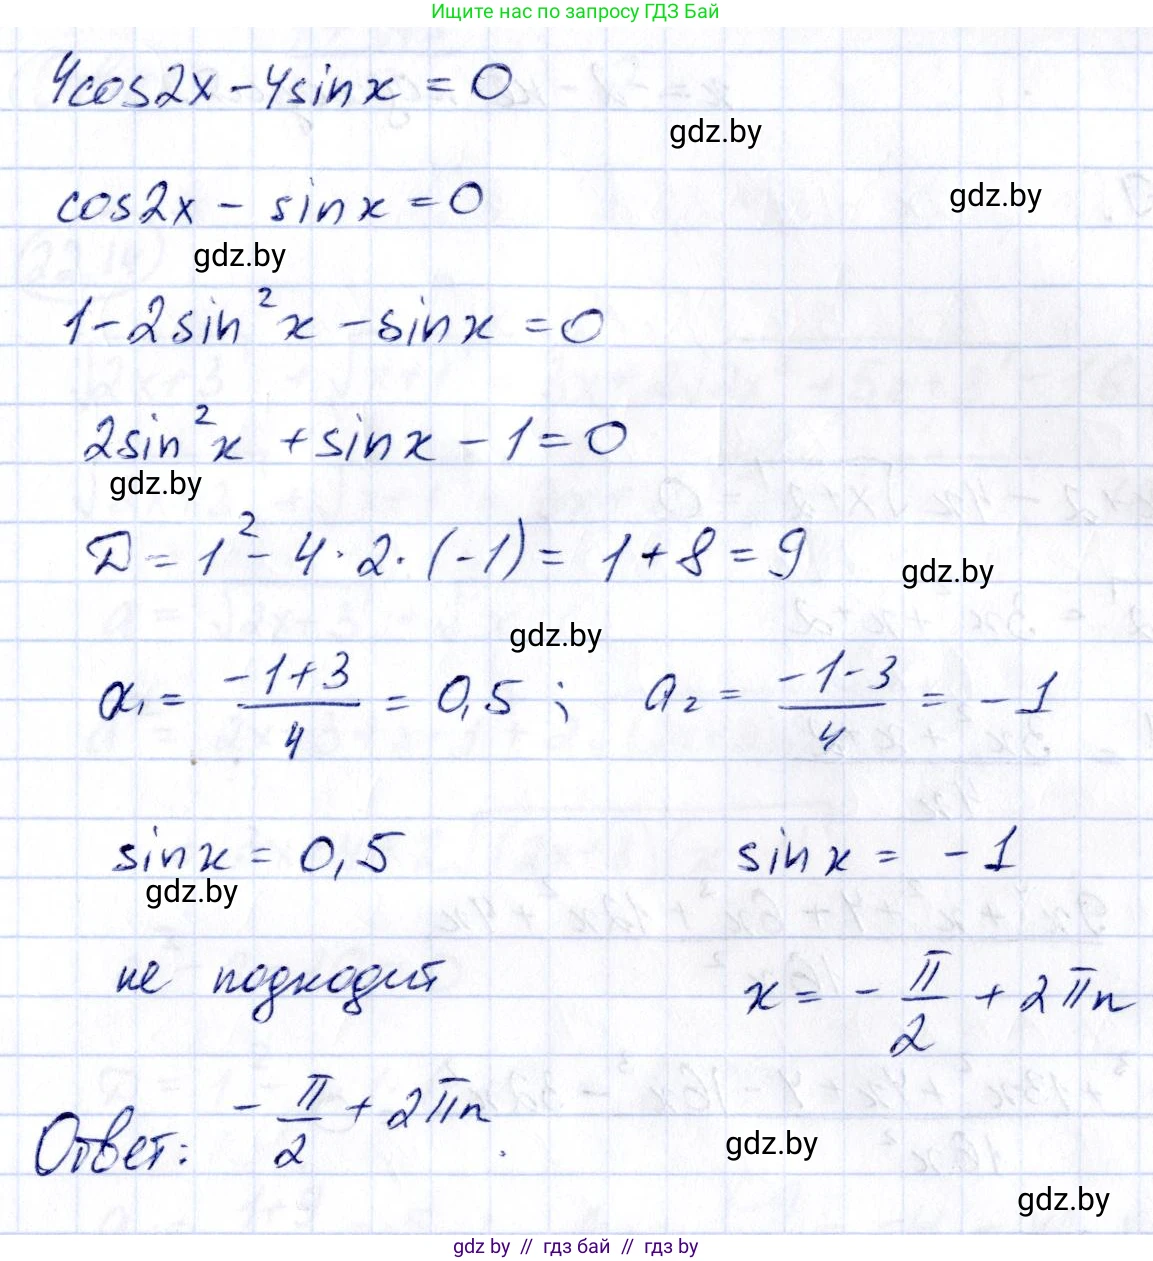 Ищите нас по запросу ГДЗ Бай
4cos2x - 4sinx = 0
gdz.by
cos2x - sinx = 0
gdz.by
gdz.by
1 - 2sin²x - sinx = 0
2sin²x + sinx - 1 = 0
gdz.by
D = 1² - 4 · 2 · (-1) = 1 + 8 = 9
gdz.by
gdz.by
a₁ = (-1+3)/4 = 0,5 ; a₂ = (-1-3)/4 = -1
sinx = 0,5 sinx = -1
gdz.by
не подходит x = -π/2 + 2πn
Ответ: -π/2 + 2πn.
gdz.by
gdz.by
gdz by // гдз бай // гдз by